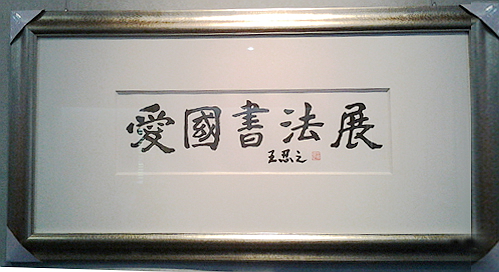 愛國書法展
王忍之